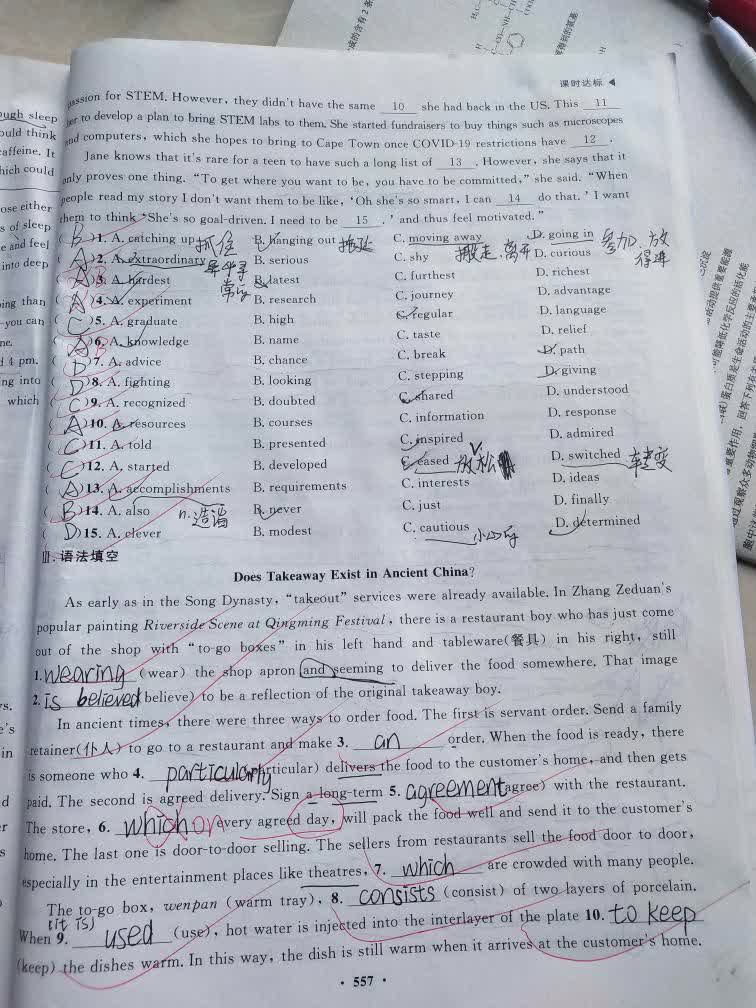 课时达标
passion for STEM. However, they didn't have the same 10 she had back in the US. This 11
her to develop a plan to bring STEM labs to them. She started fundraisers to buy things such as microscopes
and computers, which she hopes to bring to Cape Town once COVID-19 restrictions have 12 .
Jane knows that it's rare for a teen to have such a long list of 13 . However, she says that it
only proves one thing. "To get where you want to be, you have to be committed," she said. "When
people read my story I don't want them to be like, 'Oh she's so smart, I can 14 do that.' I want
them to think 'She's so goal-driven. I need to be 15 .' and thus feel motivated."
(B)1. A. catching up 抓住 B. hanging out C. moving away D. going in 参加.
(A)2. A. extraordinary B. serious C. shy 搬走.离开 D. curious
( )3. A. hardest B. latest C. furthest D. richest
(A)4. A. experiment B. research C. journey D. advantage
(C)5. A. graduate B. high C. regular D. language
( )6. A. knowledge B. name C. taste D. relief
(D)7. A. advice B. chance C. break D. path
(D)8. A. fighting B. looking C. stepping D. giving
(C)9. A. recognized B. doubted C. shared D. understood
(A)10. A. resources B. courses C. information D. response
(C)11. A. told B. presented C. inspired D. admired
(C)12. A. started B. developed C. eased 放松 D. switched 转变
(A)13. A. accomplishments B. requirements C. interests D. ideas
(B)14. A. also n.造诣 B. never C. just D. finally
(D)15. A. clever B. modest C. cautious 小心的 D. determined
Ⅲ. 语法填空
Does Takeaway Exist in Ancient China?
As early as in the Song Dynasty, "takeout" services were already available. In Zhang Zeduan's
popular painting Riverside Scene at Qingming Festival, there is a restaurant boy who has just come
out of the shop with "to-go boxes" in his left hand and tableware(餐具) in his right, still
1. wearing (wear) the shop apron and seeming to deliver the food somewhere. That image
2. is believed believe) to be a reflection of the original takeaway boy.
In ancient times, there were three ways to order food. The first is servant order. Send a family
retainer(仆人) to go to a restaurant and make 3. an order. When the food is ready, there
is someone who 4. particularly rticular) delivers the food to the customer's home, and then gets
paid. The second is agreed delivery. Sign a long-term 5. agreement agree) with the restaurant.
The store, 6. which on every agreed day, will pack the food well and send it to the customer's
home. The last one is door-to-door selling. The sellers from restaurants sell the food door to door,
especially in the entertainment places like theatres, 7. which are crowded with many people.
The to-go box, wenpan (warm tray), 8. consists (consist) of two layers of porcelain.
(it is)
When 9. used (use), hot water is injected into the interlayer of the plate 10. to keep
(keep) the dishes warm. In this way, the dish is still warm when it arrives at the customer's home.
· 557 ·